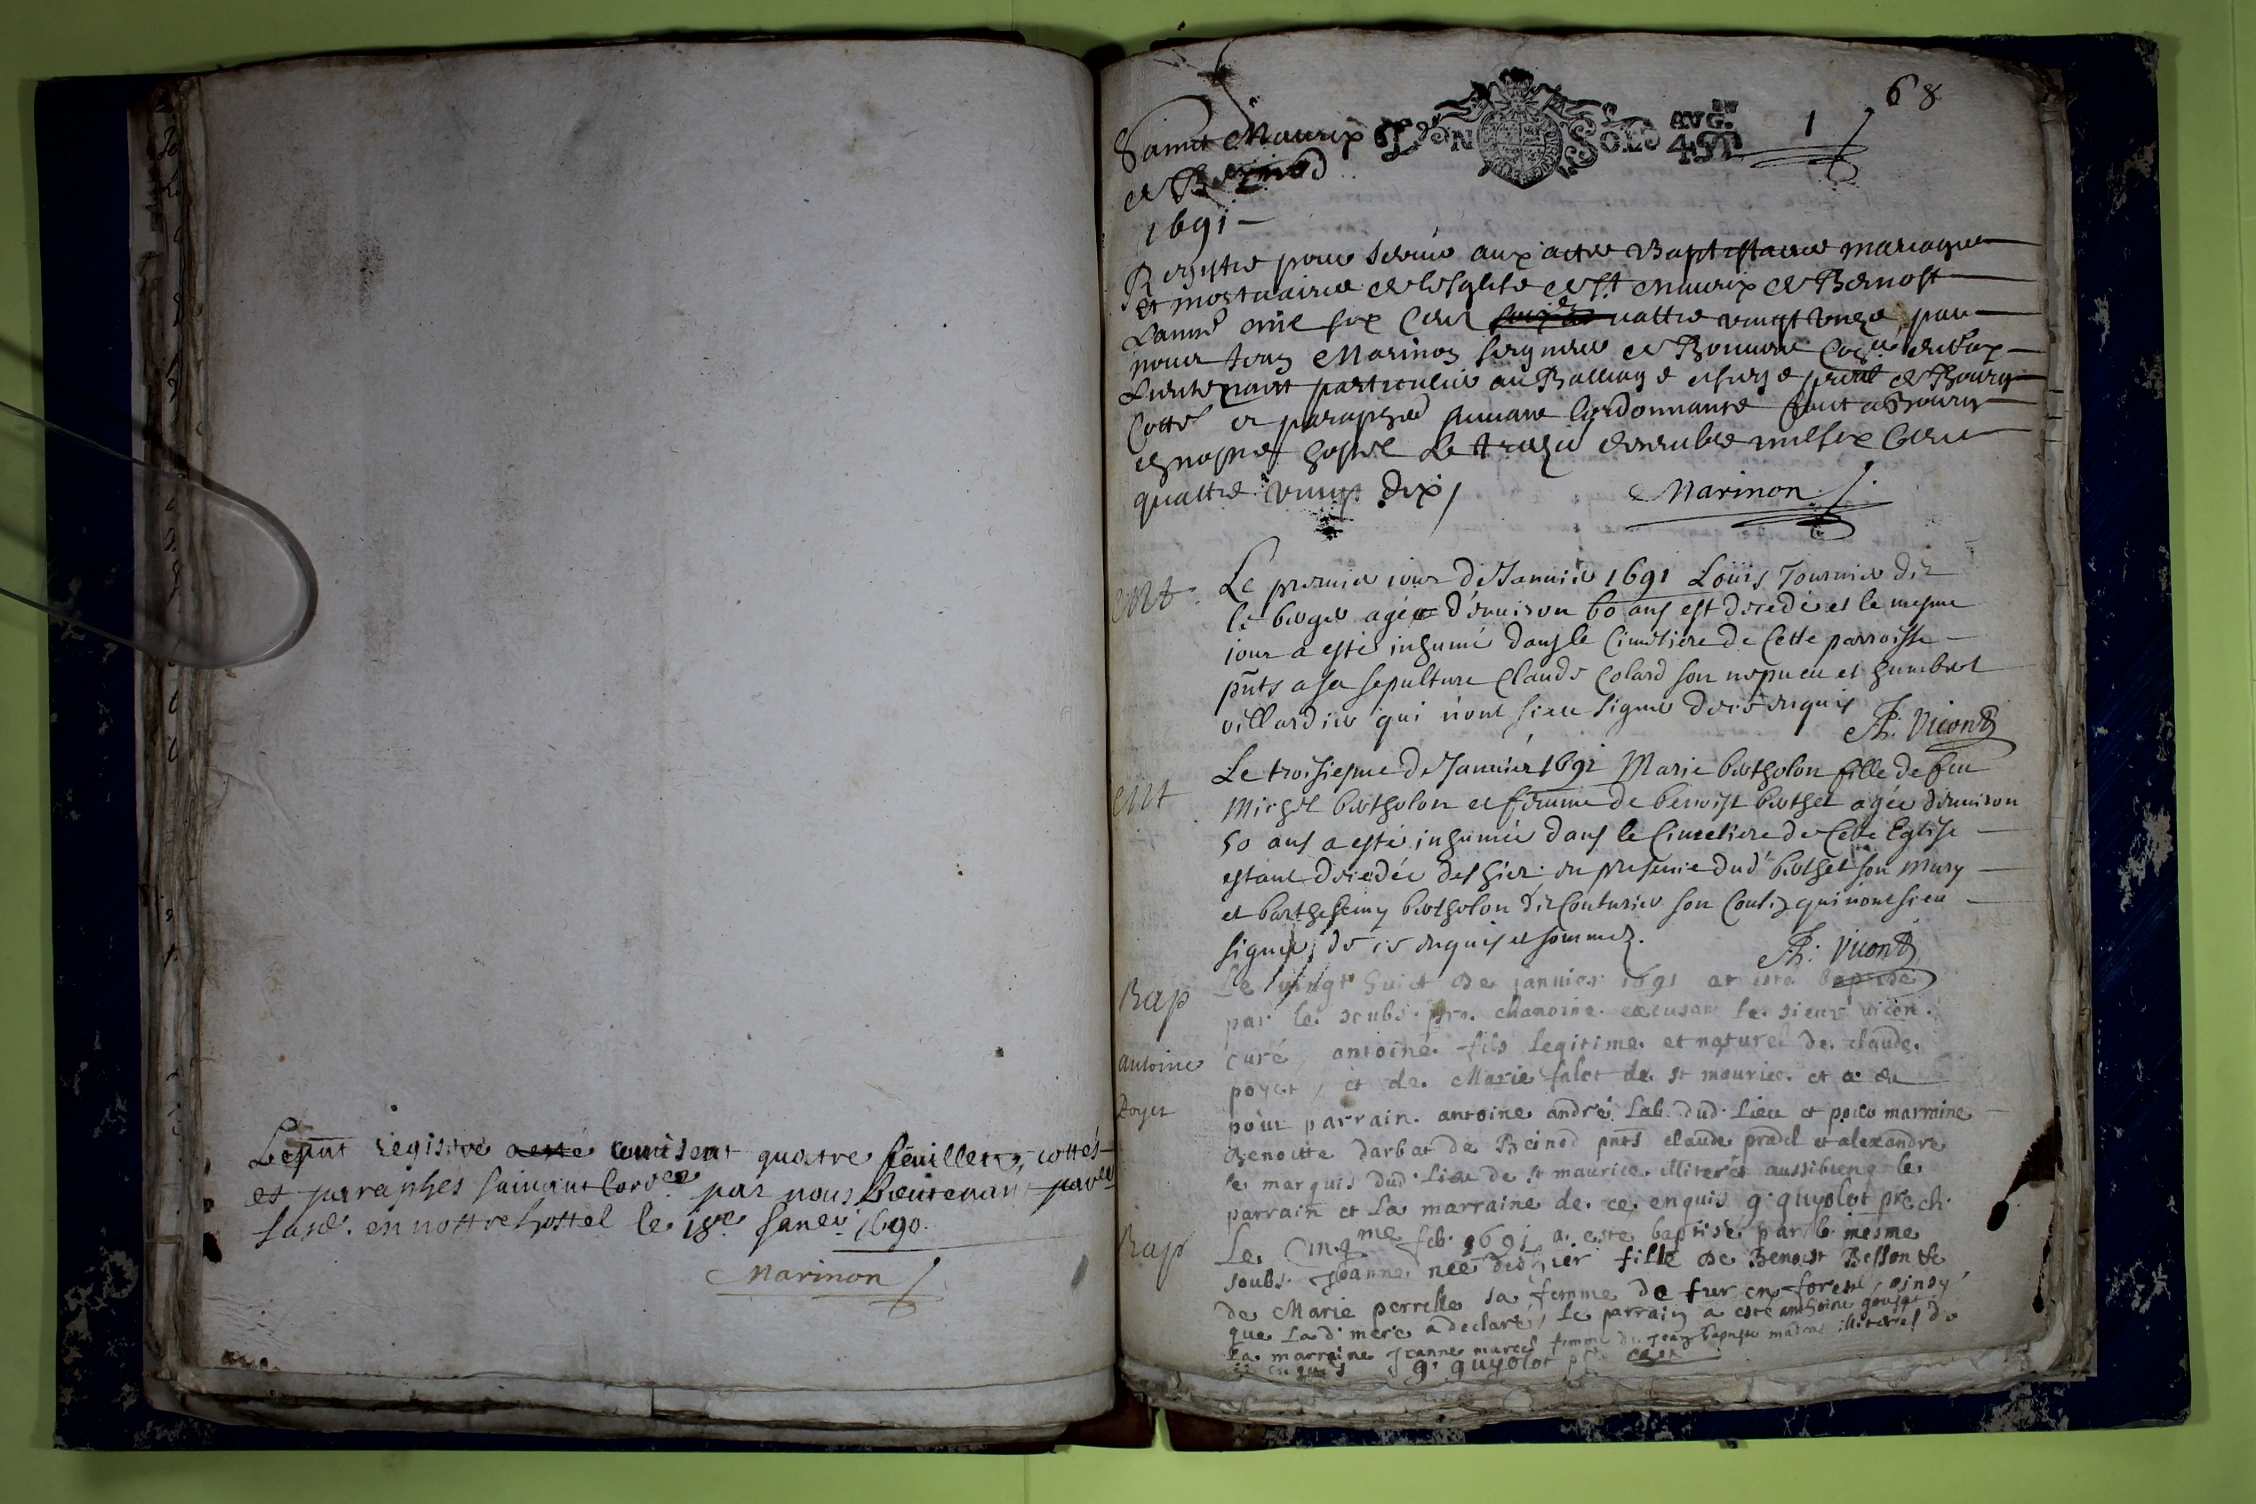 Le pnt registre contenant quatre feuillets, cottés
et paraphés suivant l'ord.ce par nous Lieutenant par.er
susd. en nottre hostel le 18e Janer 1690.
Marinon
68
1
Saint Maurix GEN SOLS AVG.on 4ST
de Beinod
1691
Registre pour servir aux actes Baptistaires mariages
et mortuaires de leglise de St Maurix de Beinost
Lannee mil six cens quattre vingt unze, par
nous Jean Marinon seigneur de Bonnore
Lieutenant particulier au Balliage et siege pnal de Bourg
Cotté et paraphé suivant lordonnance fait a Bourg
en nostre hostel le treize decembre mil six cens
quattre vingt dix /
Marinon
Mt. Le premier jour de Janvier 1691 Loüis Tournier dit
le berger agée d'environ 60 ans est decedé et le mesme
jour a esté inhumé dans le Cimetiere de Cette parroisse
pñts a sa sepulture Claude Colard son nepueu et humbert
villardier qui n'ont sceu signer de ce enquis
Vicond
Mt Le troisiesme de Janvier 1691 Marie bertholon fille de feu
Michel bertholon et femme de benoist berthet agée d'environ
50 ans a esté inhumée dans le Cimetiere de Cette Eglise
estant decedée des hier en presence dud berthet son mary
et barthelemy bertholon dit Couturier son Cousin qui n'ont sceu
signer de ce enquis et sommez.
Vicond
Bap Le vingt huict de janvier 1691 at esté baptisé
par le. soubs. pre. chanoine. excusant le. sieur vicon.
Antoine curé, antoine. fils legitime. et naturel de. claude.
Poyet poyet, et de. Marie falet de. st maurice. et a eu
pour parrain. antoine andré lab. dud. Lieu et pour marraine
Benoitte darbat de Beinod pnts claude pradel et alexandre
le marquis dud. Lieu de st maurice. illiterés aussibiene le.
parrain et La marraine de. ce. enquis g. guyolot pr ch.
Bap Le. Cinqme feb. 1691 a. esté baptisé par le mesme
soubs. Jeanne née d'hier fille de Benoist Besson &
de Marie perrelle sa femme de fur en forest, ainsy
que La d. mere a declaré, Le parrain a esté anthoine
La. marraine Jeanne femme de Jean baptiste illiterés de
ce enquis g. guyolot pr. ch.